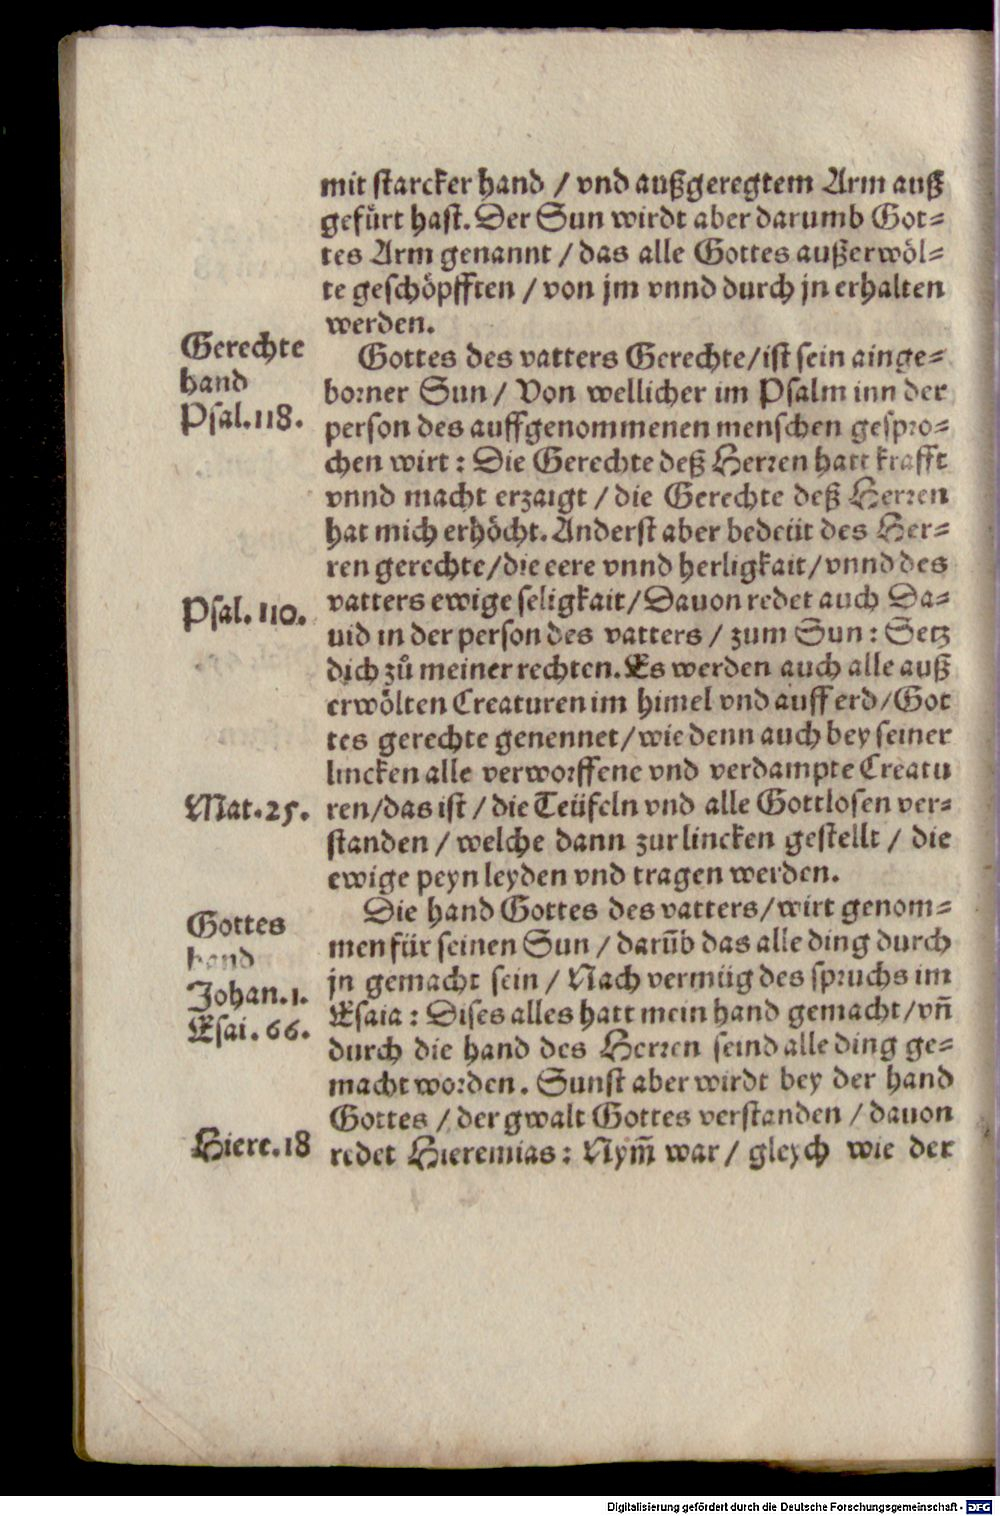 mit starcker hand / vnd außgeregtem Arm auß
gefürt hast. Der Sun wirdt aber darumb Got=
tes Arm genannt / das alle Gottes außerwöl=
te geschöpfften / von jm vnnd durch jn erhalten
werden.
Gerechte
hand
Psal. 118.
Gottes des vatters Gerechte / ist sein ainge=
borner Sun / Von wellicher im Psalm inn der
person des auffgenommenen menschen gespro=
chen wirt : Die Gerechte deß Herren hatt krafft
vnnd macht erzaigt / die Gerechte deß Herren
hat mich erhöcht. Anderst aber bedeüt des Her=
ren gerechte / die eere vnnd herligkait / vnnd des
Psal. 110.
vatters ewige seligkait / Dauon redet auch Da=
uid in der person des vatters / zum Sun : Setz
dich zů meiner rechten. Es werden auch alle auß
erwölten Creaturen im himel vnd auff erd / Got
tes gerechte genennet / wie denn auch bey seiner
lincken alle verworffene vnd verdampte Creatu
Mat. 25.
ren / das ist / die Teüfeln vnd alle Gottlosen ver=
standen / welche dann zur lincken gestellt / die
ewige peyn leyden vnd tragen werden.
Gottes
hand
Johan. 1.
Esai. 66.
Die hand Gottes des vatters / wirt genom=
men für seinen Sun / darūb das alle ding durch
jn gemacht sein / Nach vermüg des spruchs im
Esaia : Dises alles hatt mein hand gemacht / vn̄
durch die hand des Herren seind alle ding ge=
macht worden. Sunst aber wirdt bey der hand
Gottes / der gwalt Gottes verstanden / dauon
Hiere. 18
redet Hieremias : Nym̄ war / gleych wie der
Digitalisierung gefördert durch die Deutsche Forschungsgemeinschaft - DFG